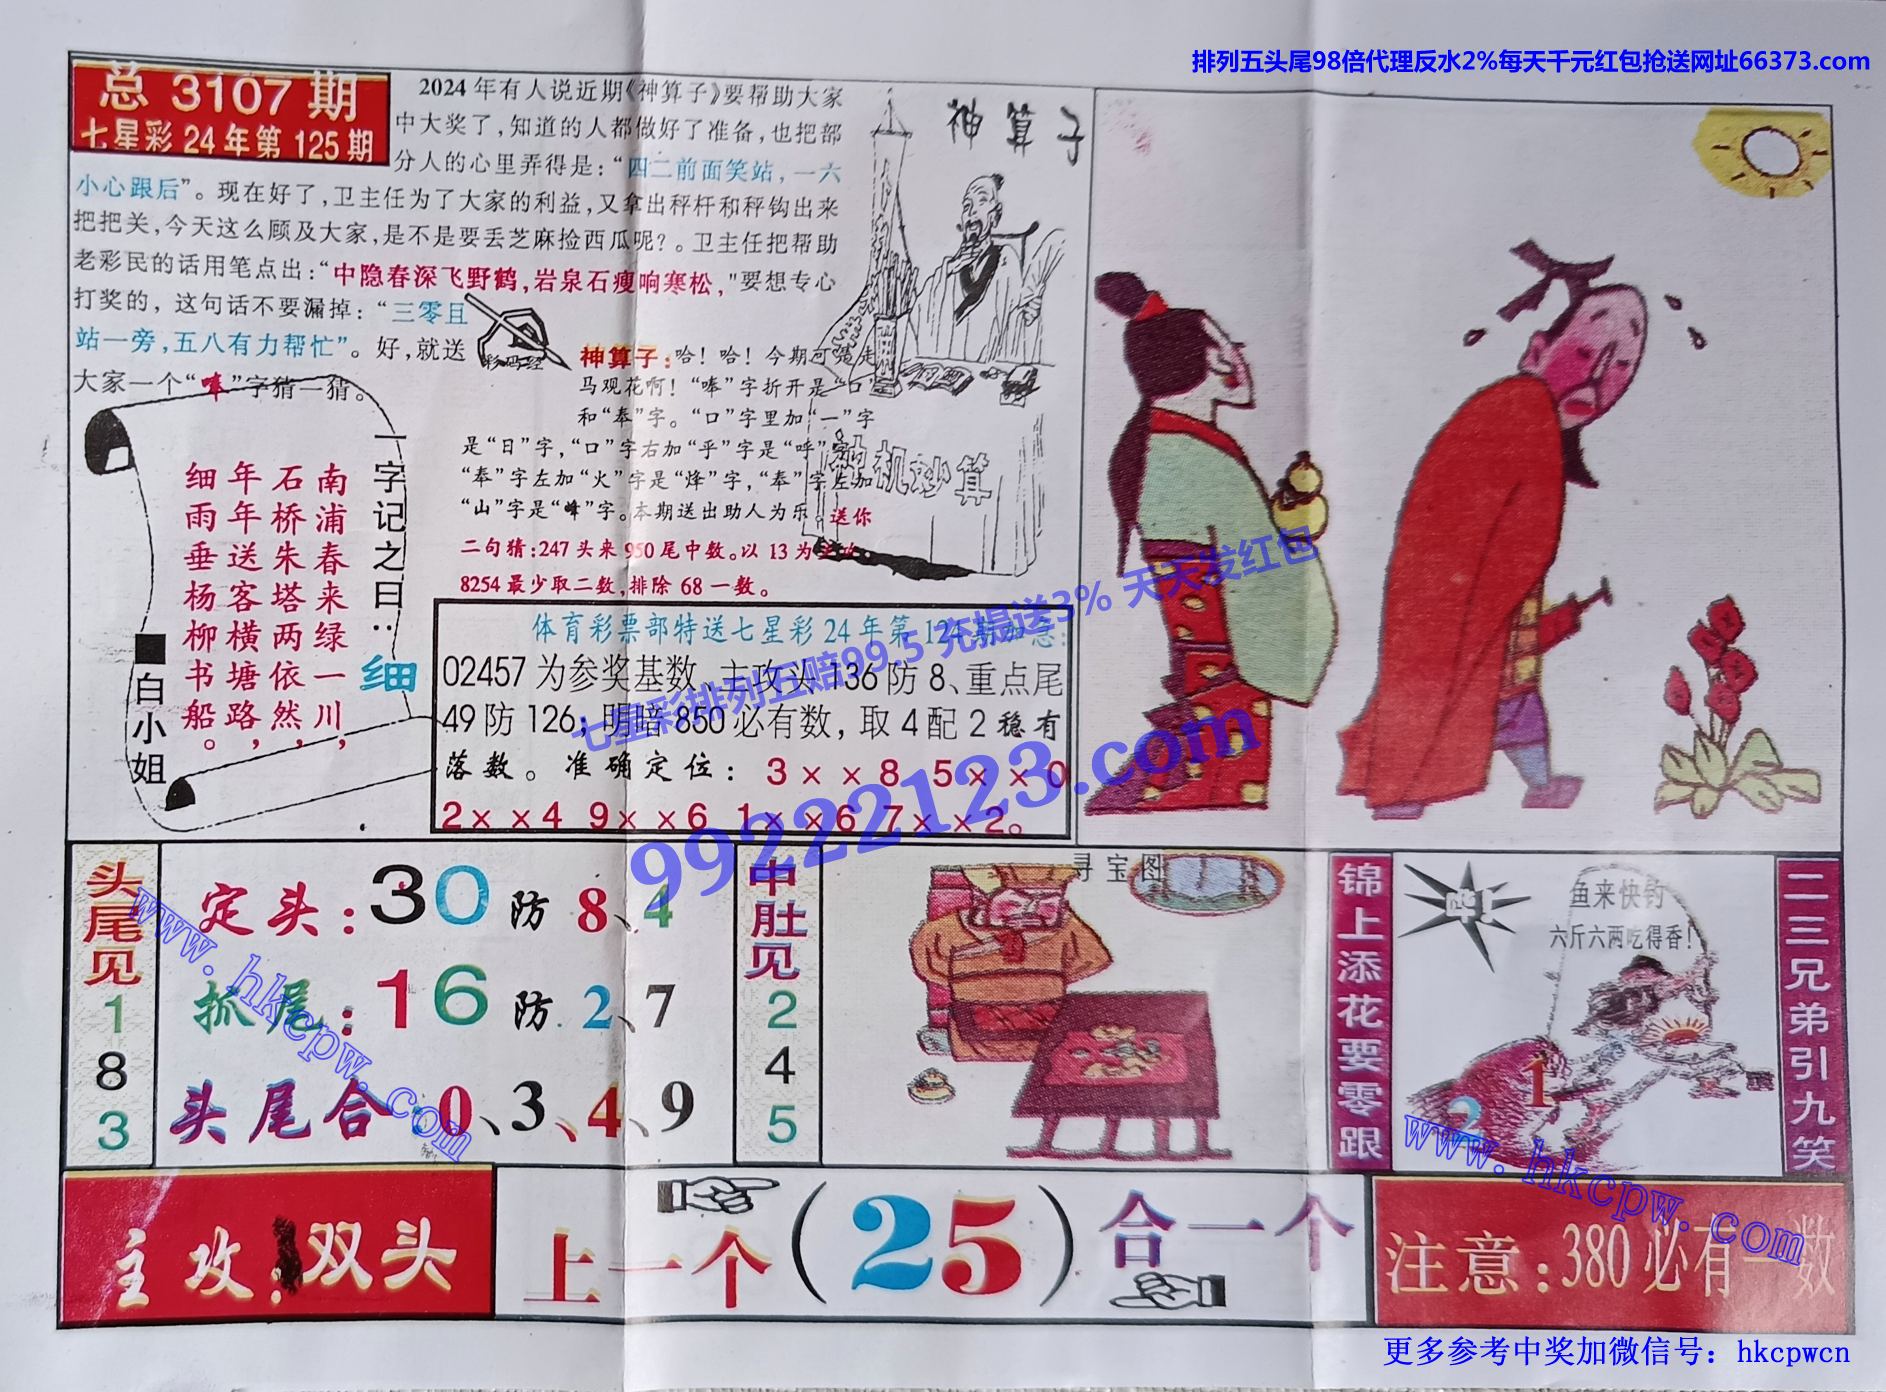 排列五头尾98倍代理反水2%每天千元红包抢送网址66373.com
总 3107 期
七星彩 24 年第 125 期
2024 年有人说近期《神算子》要帮助大家
中大奖了,知道的人都做好了准备,也把部
分人的心里弄得是:“四二前面笑站,一六
小心跟后”。现在好了,卫主任为了大家的利益,又拿出秤杆和秤钩出来
把把关,今天这么顾及大家,是不是要丢芝麻捡西瓜呢?。卫主任把帮助
老彩民的话用笔点出:“中隐春深飞野鹤,岩泉石瘦响寒松,"要想专心
打奖的, 这句话不要漏掉: “三零且
站一旁,五八有力帮忙”。好,就送
大家一个“唪”字猜一猜。
彩码经
神算子
神机妙算
神算子:哈! 哈! 今期可凭走
马观花啊! “唪”字折开是“口”
和“奉”字。“口”字里加“一”字
是“日”字,“口”字右加“乎”字是“呼”字
“奉”字左加“火”字是“烽”字,“奉”字左加
“山”字是“峰”字。本期送出助人为乐。送你
二句猜:247 头来 950 尾中数。以 13 为
8254 最少取二数,排除 68 一数。
一字记之曰:细
南浦春来绿一川,
石桥朱塔两依然,
年年送客横塘路,
细雨垂杨柳书船。
白小姐
体育彩票部特送七星彩 24 年第 124 期
02457 为参奖基数、主攻头 136 防 8、重点尾
49 防 126; 明暗 850 必有数, 取 4 配 2 稳有
落数。准确定位: 3××8 5××0
2××4 9××6 1××6 7××2。
七星彩排列五赔99.5 充提送3% 天天发红包
99222123.com
头尾见
1
8
3
定头:30 防 8、4
抓尾:16 防 2、7
头尾合:0、3、4、9
中肚见
2
4
5
寻宝图
锦上添花要零跟
鱼来快钓
六斤六两吃得香!
1
2
二三兄弟引九笑
www.hkcpw.com
www.hkcpw.com
主攻:双头
上一个(25)合一个
注意:380必有一数
更多参考中奖加微信号:hkcpwcn